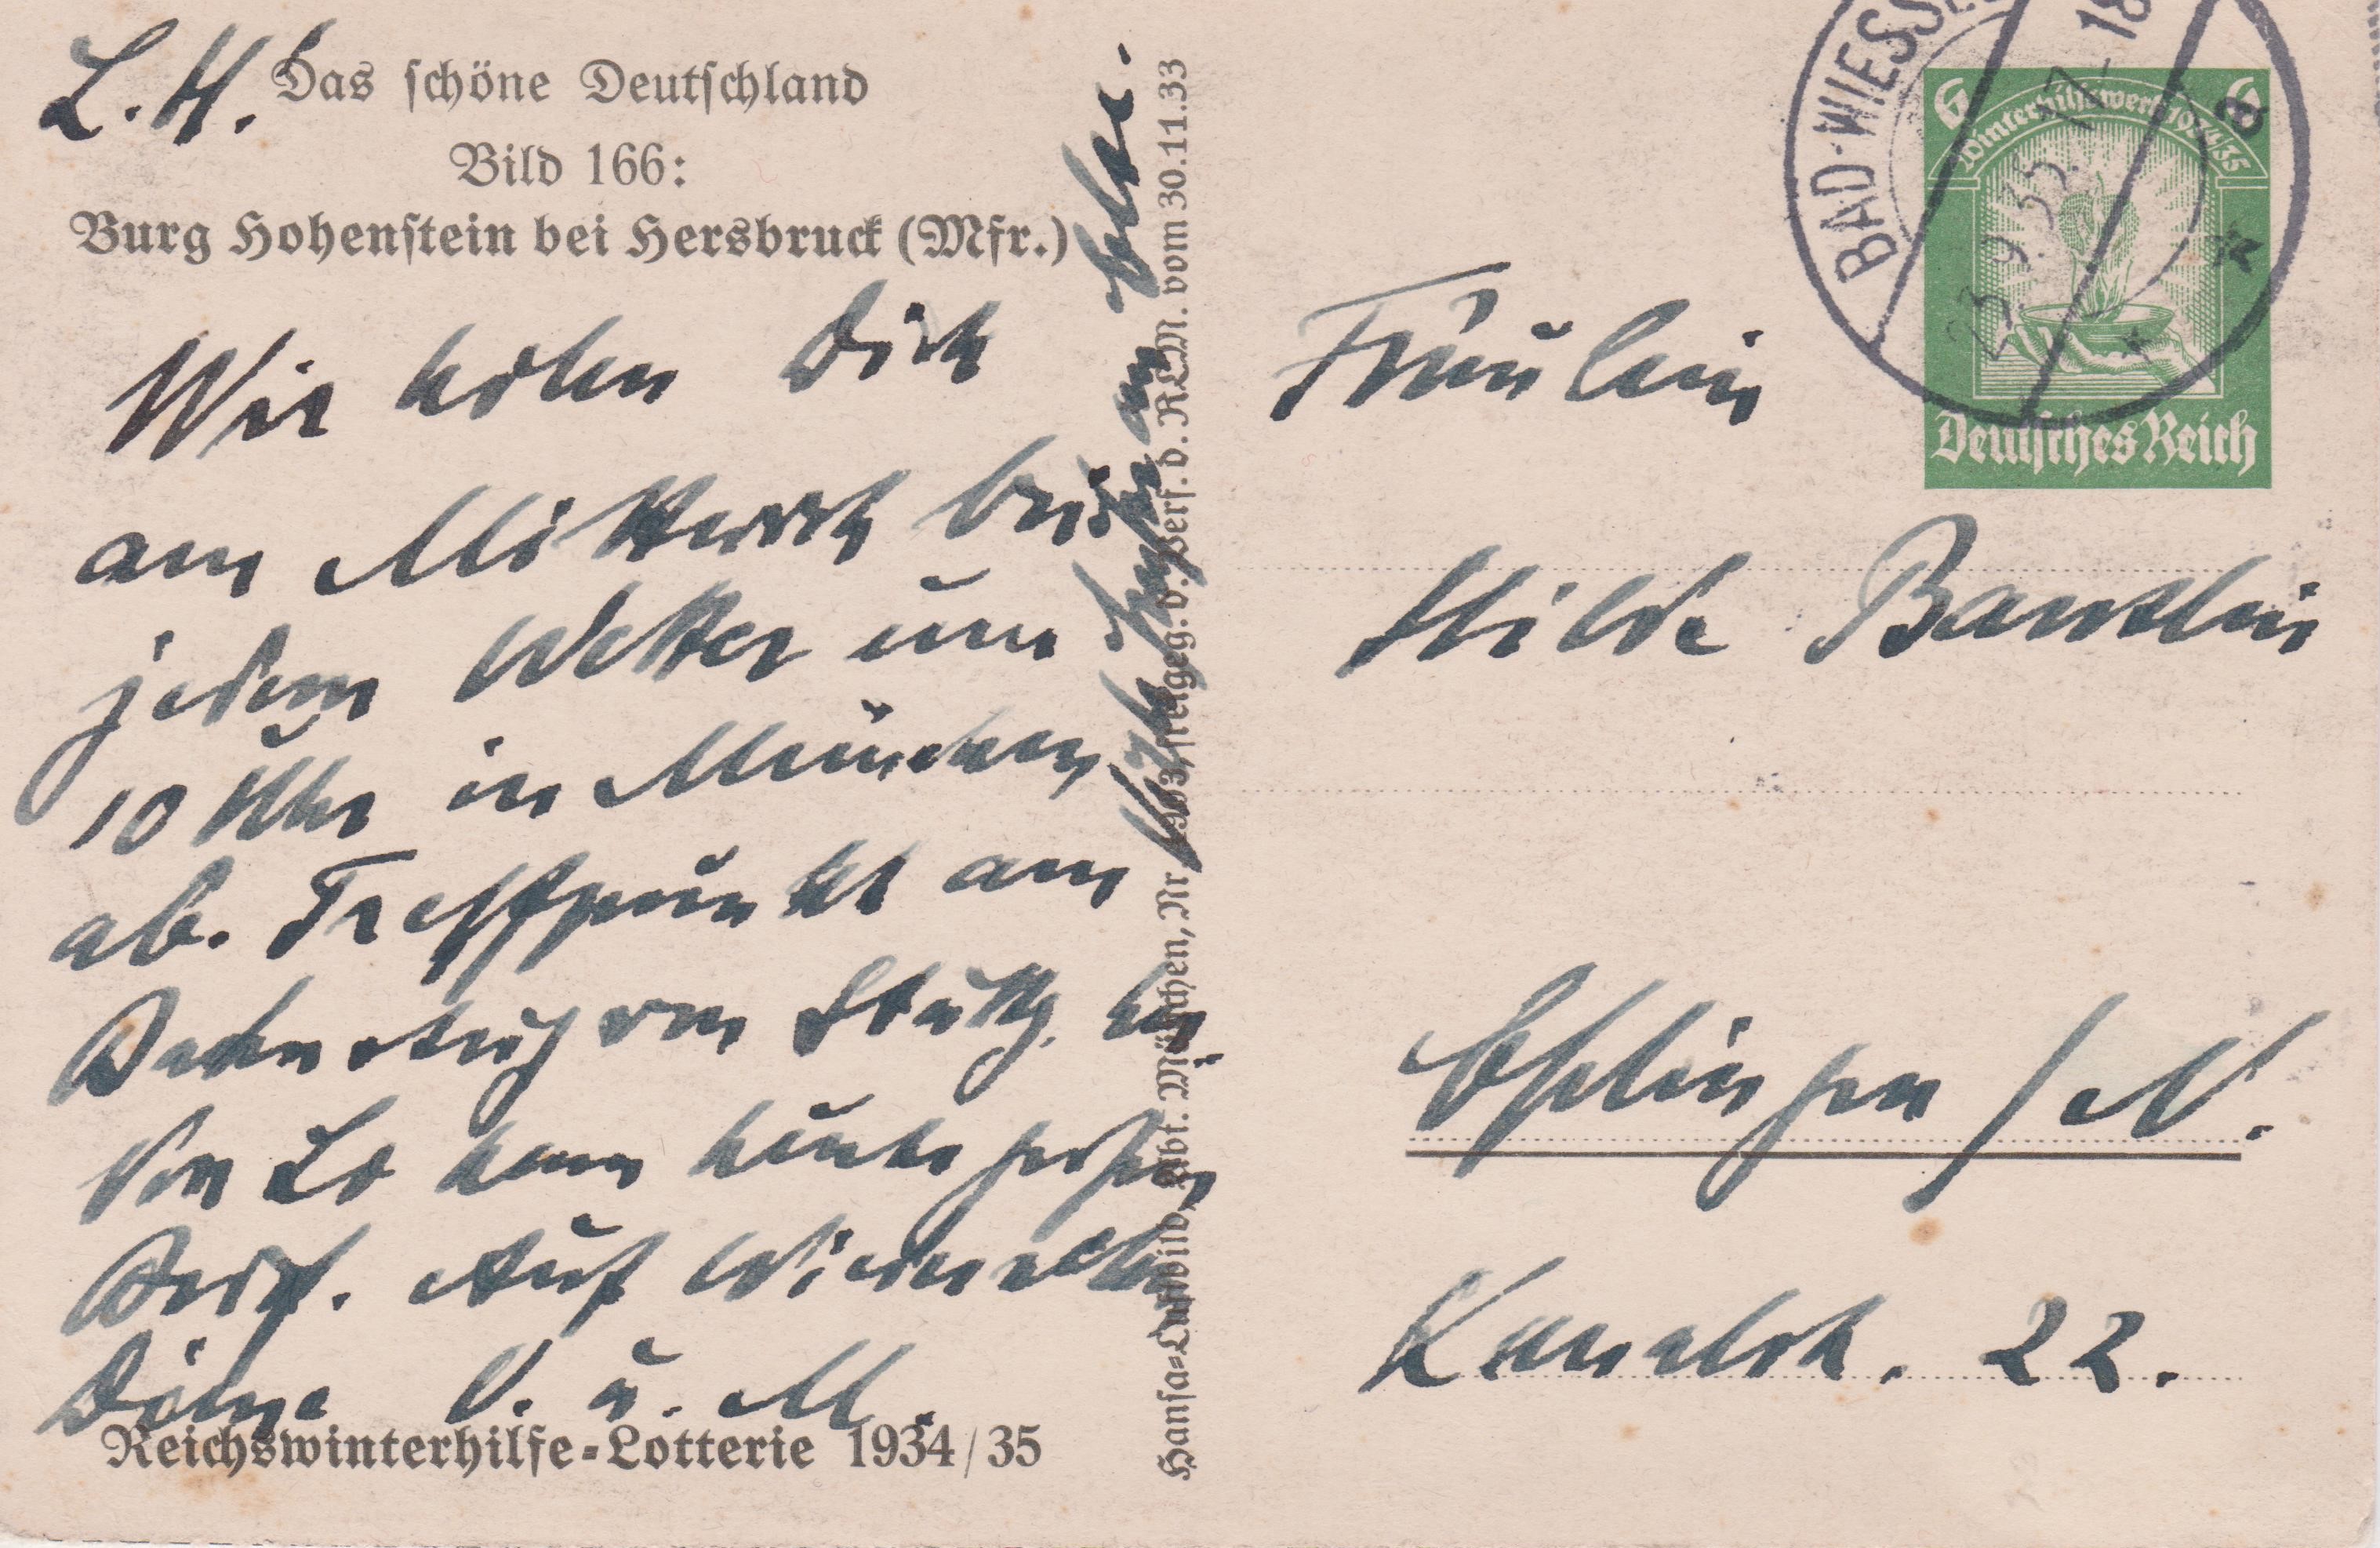 L. H.!
Das schöne Deutschland
Bild 166:
Burg Hohenstein bei Hersbruck (Mfr.)
Wir holen Dich
am Mittwoch bei
jedem Wetter um
10 Uhr in München
ab. Treffpunkt am
Bahnsteig von Stuttg. her.
Von Lo kam heute
Auf Wiedersehen
V. u. M.
Reichswinterhilfe-Lotterie 1934/35
Hansa-Luftbild, Abt. München, Nr. freigeg. d. Verf. d. RLM. vom 30.11.33
BAD-WIESSEE
23.9.35. 17-18
a
6 6
Winterhilfswerk 1934/35
Deutsches Reich
Fräulein
Hilde Bantlin
Eßlingen / N.
Kanalstr. 22.